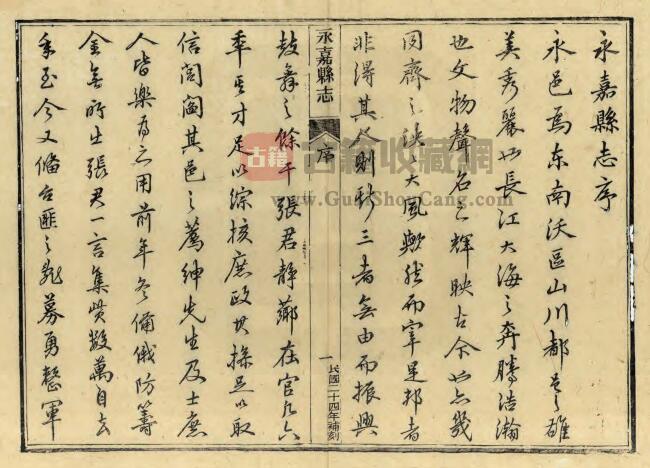 永嘉縣志序
永邑為东南沃區山川都邑之雄
美秀麗如長江大海之奔騰浩瀚
也文物聲名之輝映古今
齊之泱泱大風歟然而宰是邦者
非得其人則 三者無由而振興
永嘉縣志
序
一
民國二十四年補刻
鼓舞之餘干張君靜薌在官五六
年其才足以綜核庶政其操足以取
信閭閻其邑之薦紳先生及士庶
人皆樂為之用前年冬備俄防籌
金無所出張君一言集貲數萬自去
冬至今又備台匪之亂募勇整軍
古籍
古籍收藏網
www.GuJiShouCang.com